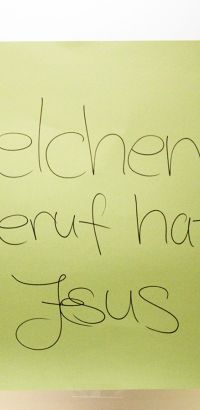 elchen
eruf hat
Jesus